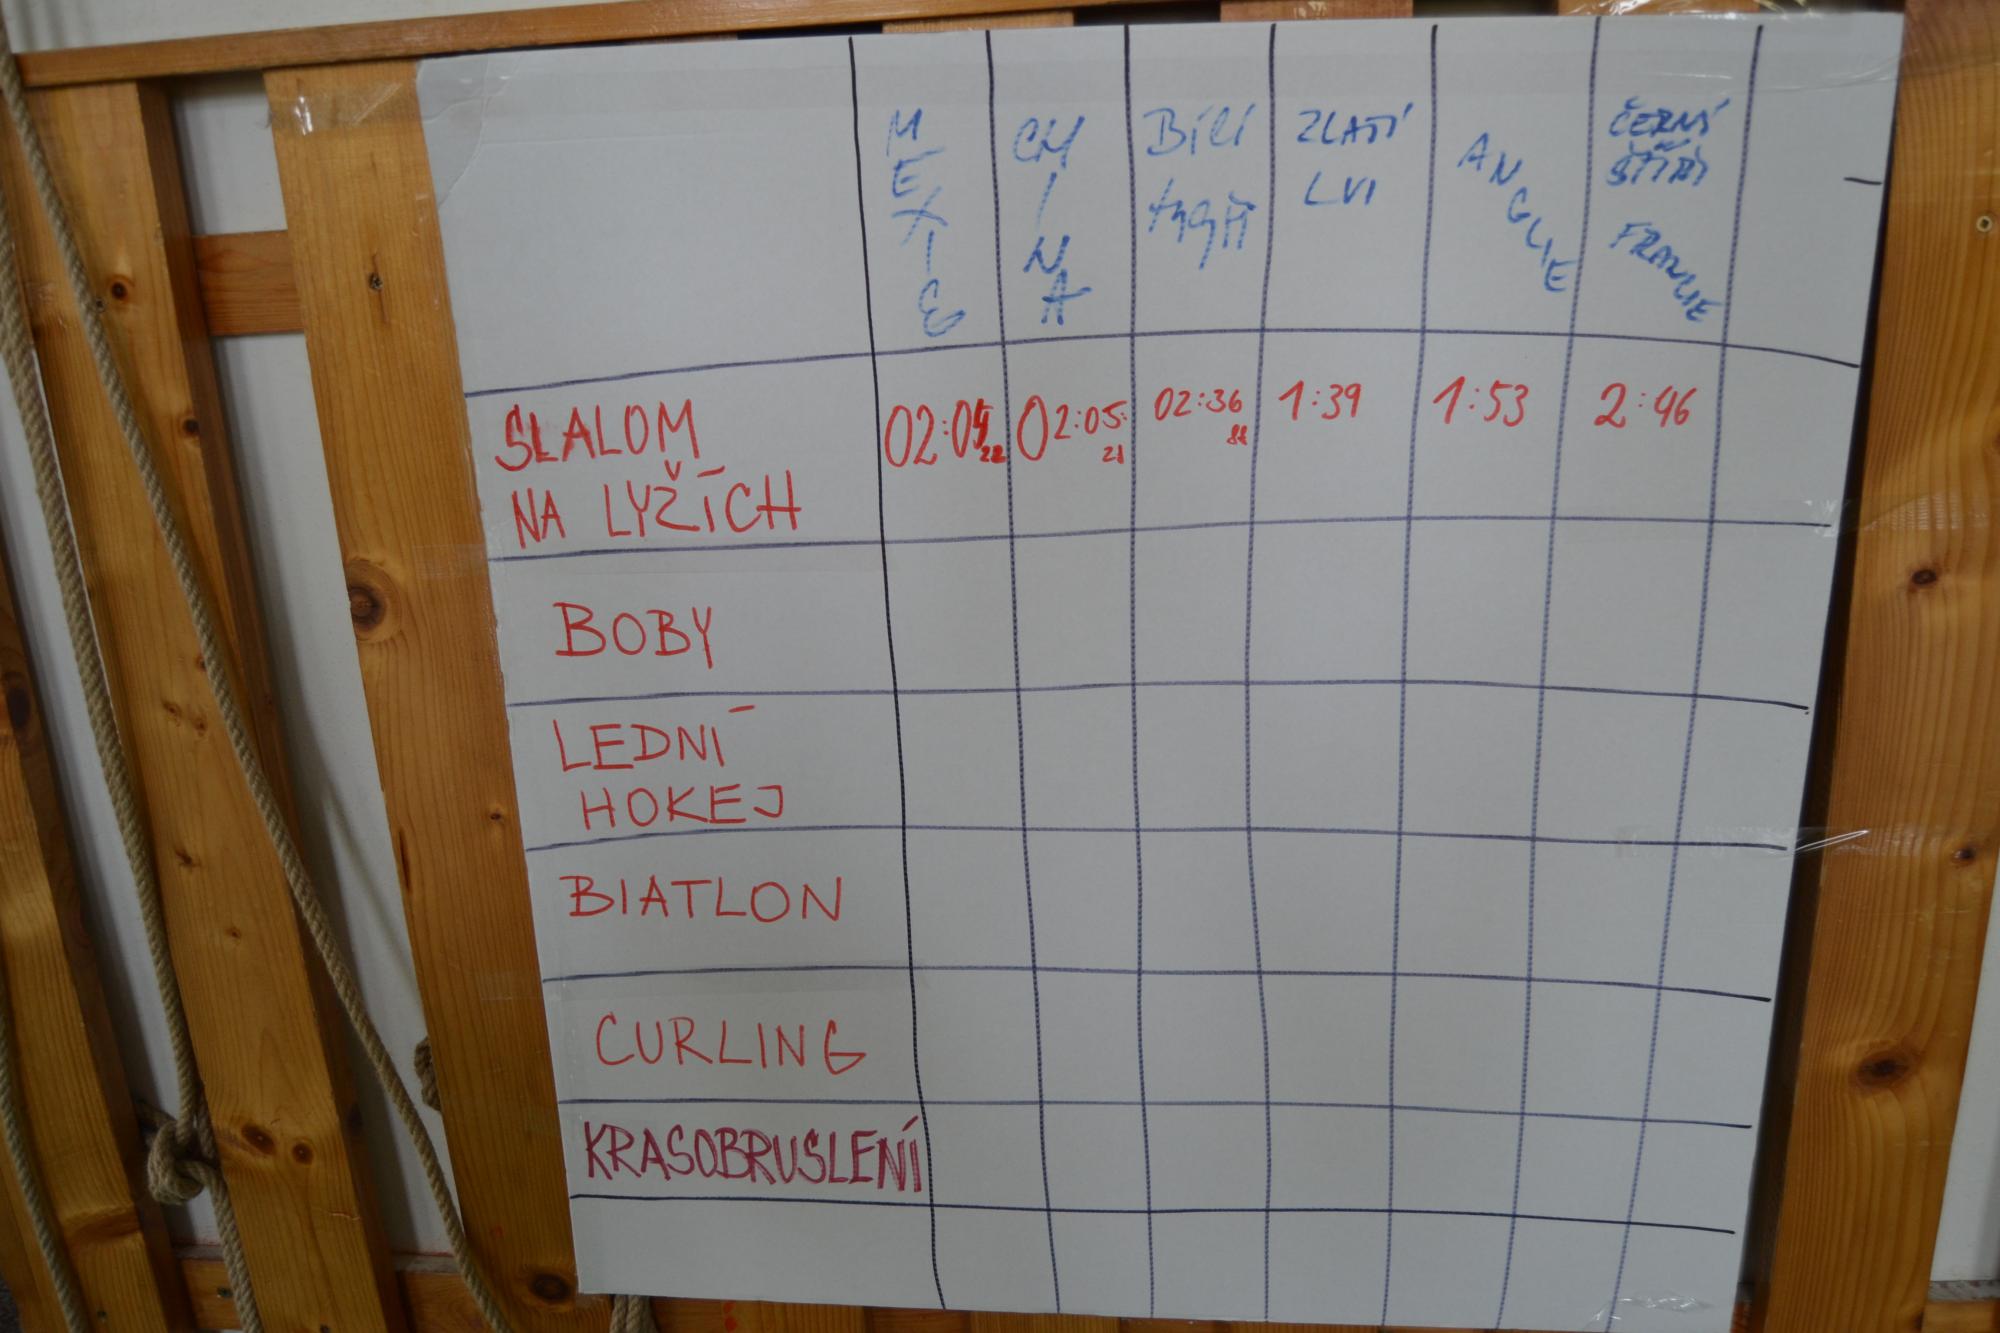 MEXICO
CHINA
BÍLÍ
tygři
ZLATÍ
LVI
ANGLIE
ČERNÍ
ŠTÍŘI
FRANCIE
SLALOM
NA LYŽÍCH
02:05
22
02:05:
21
02:36
1:39
1:53
2:46
BOBY
LEDNÍ
HOKEJ
BIATLON
CURLING
KRASOBRUSLENÍ